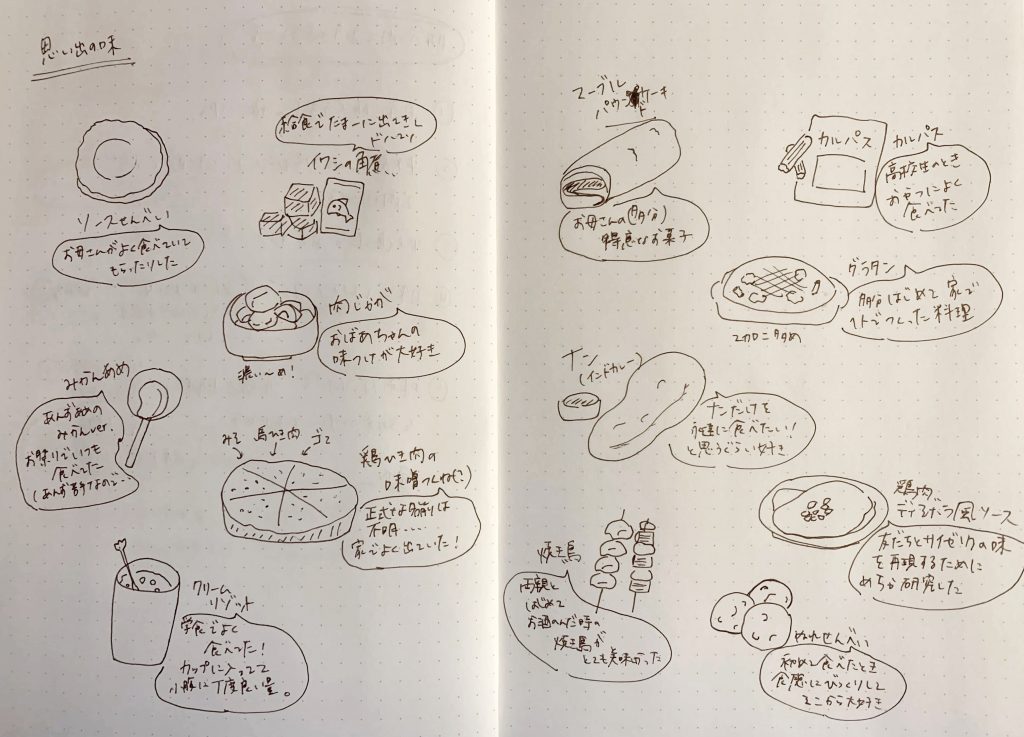 思い出の味
ソースせんべい
お母さんがよく食べていて
もらったりした
給食でたまーに出てきし
イワシの角煮
肉じゃが
おばあちゃんの
味つけが大好き
濃い〜め!
みかんあめ
あんずあめの
みかんver.
お祭りでいつも
食べてた
(あんず苦手なので
みそ 鶏ひき肉 ゴマ
鶏ひき肉の
味噌つくね(?)
正式な名前は
不明....
家でよく出ていた!
クリーム
リゾット
学食でよく
食べてた!
カップに入ってて
小腹に丁度良い量。
マーブル
パウンドケーキ
お母さんの(多分)
得意なお菓子
カルパス
カルパス
高校生のとき
おやつによく
食べてた
グラタン
多分はじめて家で
1人でつくった料理
マカロニ多め
ナン
(インドカレー)
ナンだけを
永遠に食べたい!
と思うぐらい好き
鶏肉
ディアボラ風ソース
友だちとサイゼリヤの味
を再現するために
めちゃ研究した
焼き鳥
両親と
はじめて
お酒のんだ時の
焼き鳥が
とても美味かった
ぬれせんべい
初めて食べたとき
食感にびっくりして
そこから大好き